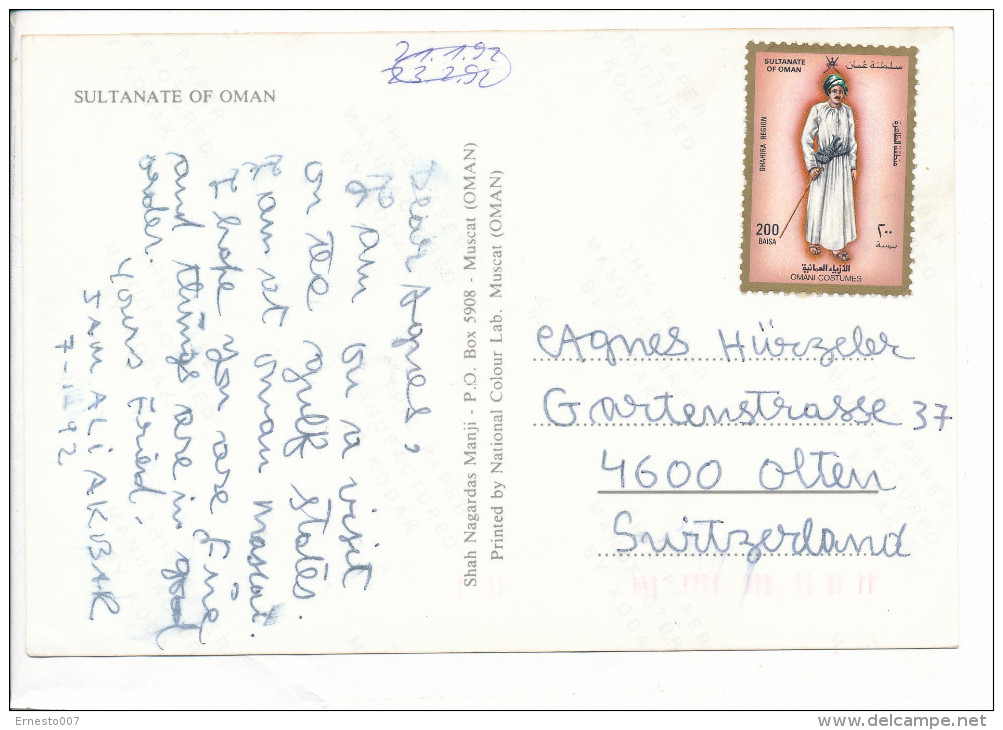 SULTANATE OF OMAN
21.1.92
23.2.92
Dear Agnes,
I am on a visit
on the gulf states.
I am at oman mascat.
I hope you are fine
and things are in good
order.
yours Friend.
JAM ALI AKBAR
7-III 92
Shah Nagardas Manji - P.O. Box 5908 - Muscat (OMAN)
Printed by National Colour Lab. Muscat (OMAN)
SULTANATE OF OMAN
سلطنة عمان
DHAHIRA REGION
منطقة الظاهرة
200 BAISA
٢٠٠ بيسة
الأزياء العمانية
OMANI COSTUMES
Agnes Hürzeler
Gartenstrasse 37
4600 Olten
Switzerland
THIS PAPER
MANUFACTURED
BY KODAK
Ernesto007
delcampe.net